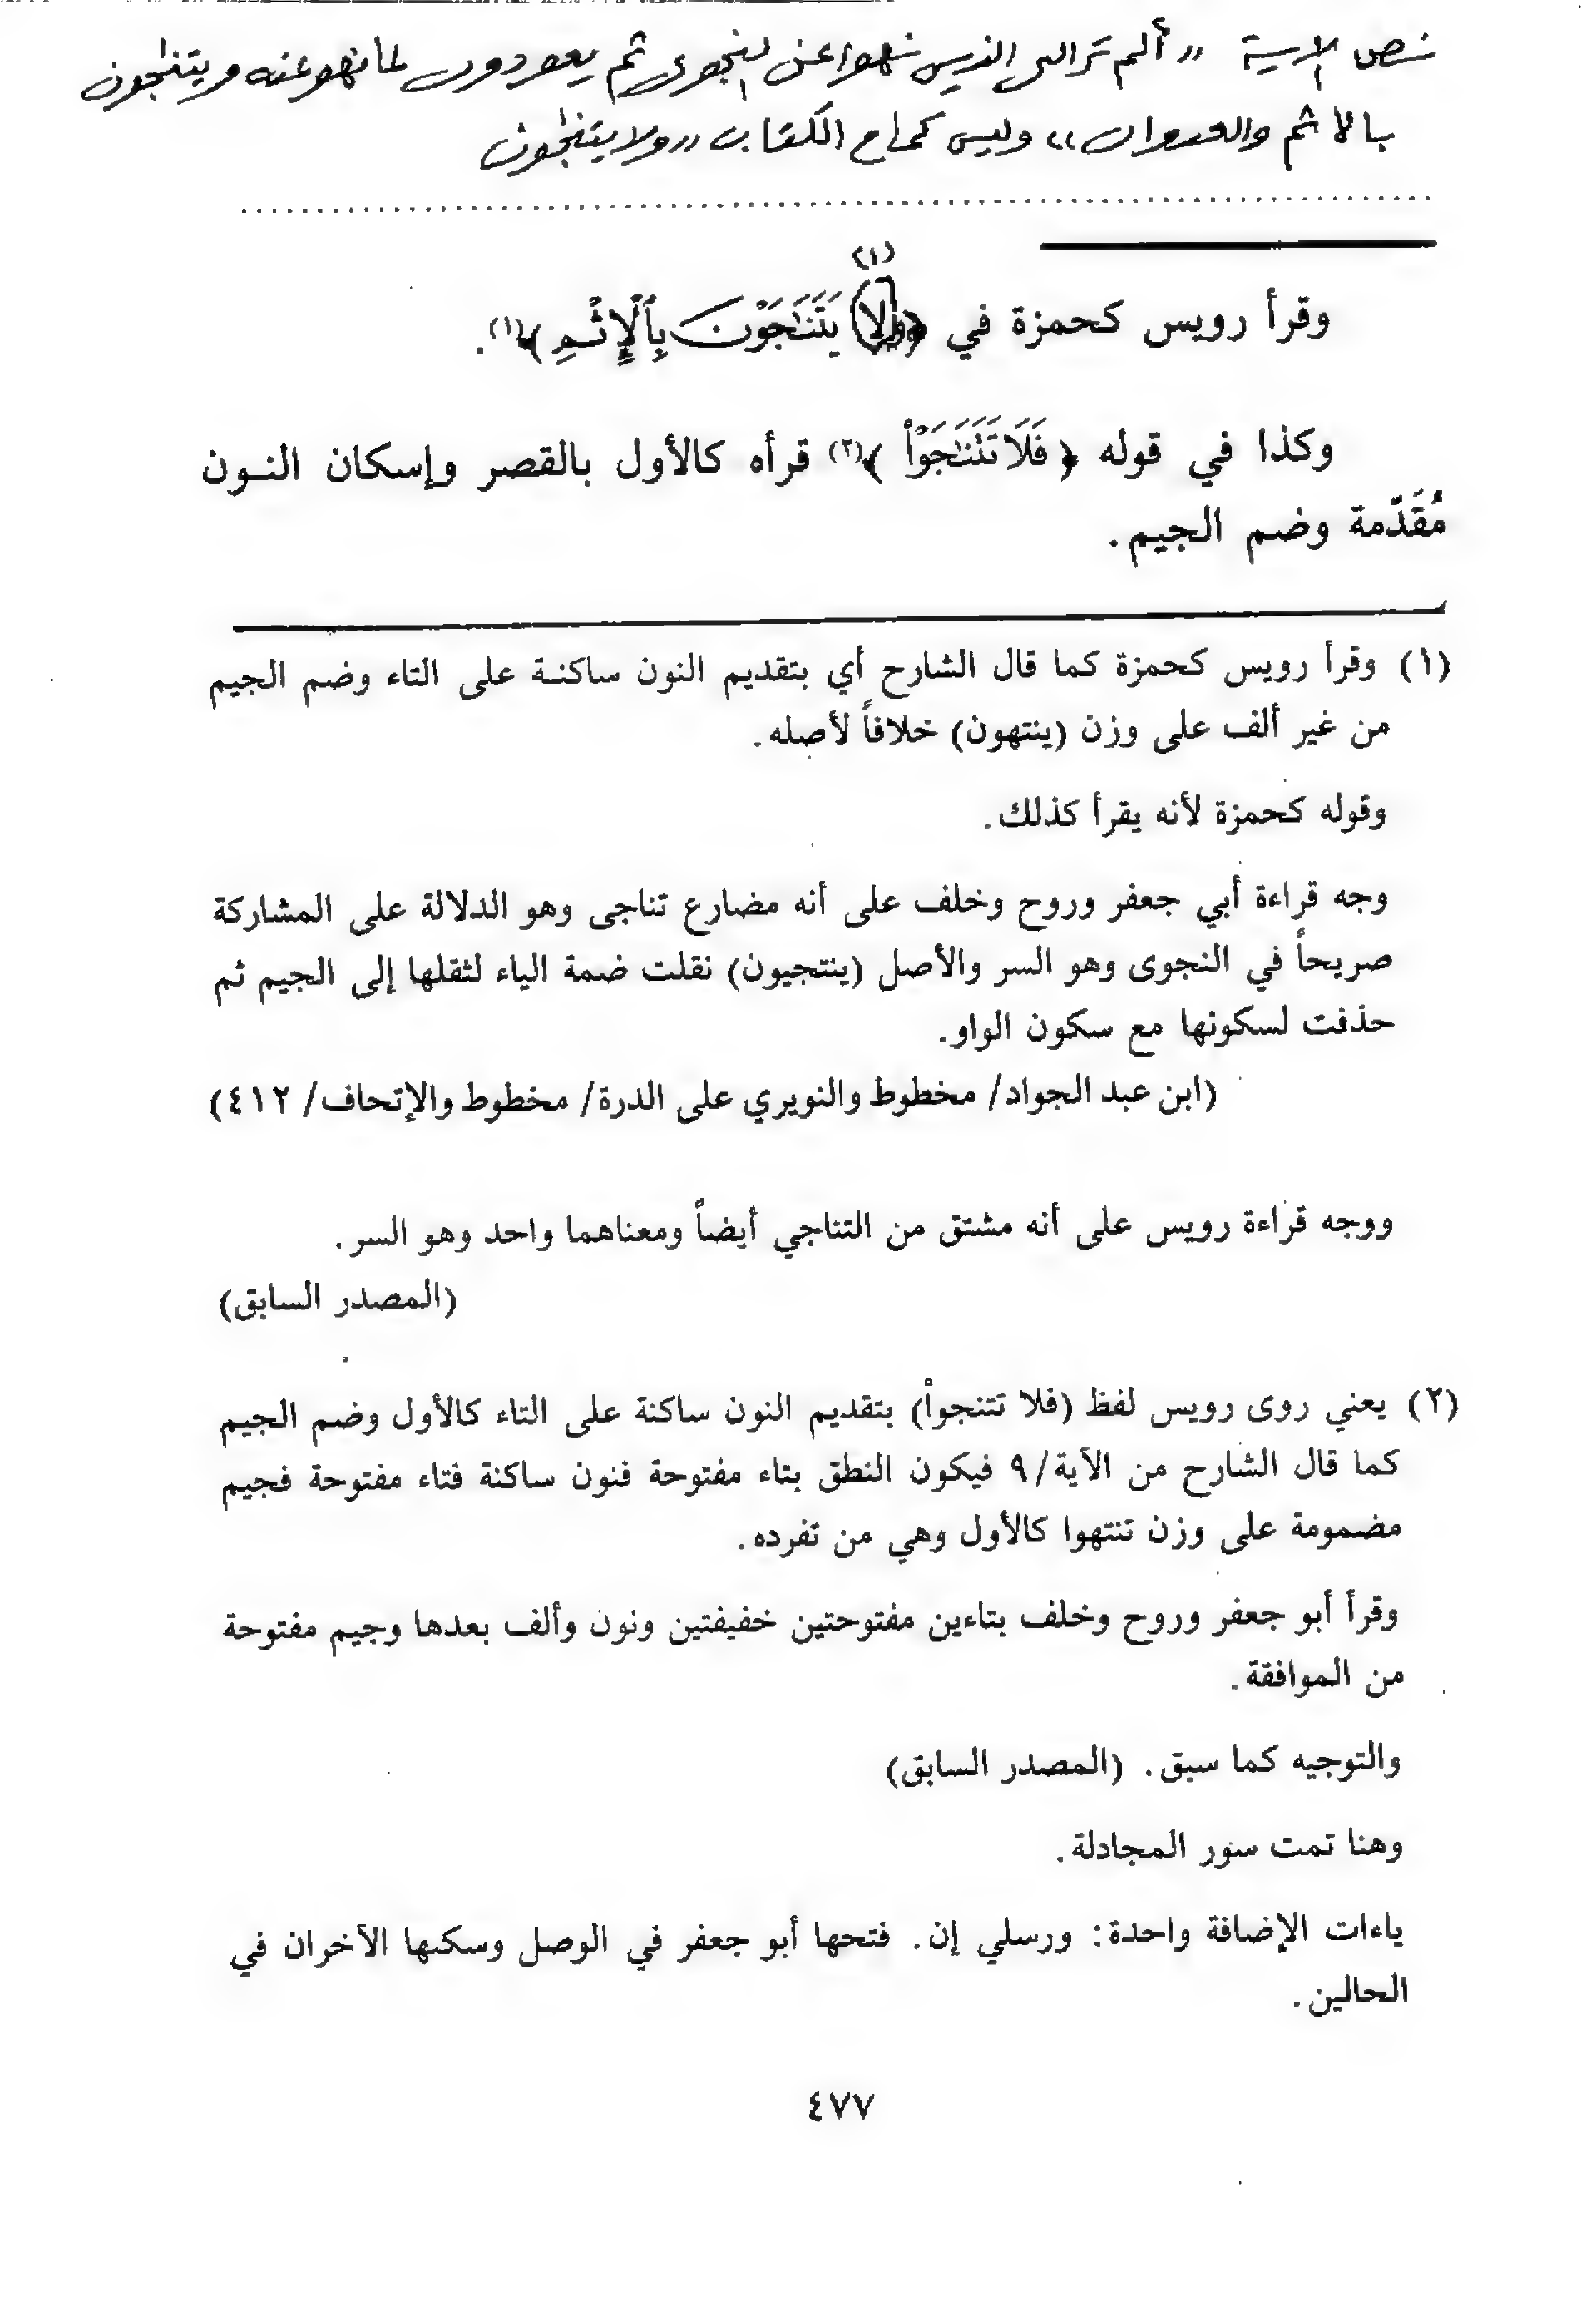 نص الآية ,, ألم تر الى الذين نهوا عن النجوى ثم يعودون لما نهو عنه ويتنٰجون
بالاثم والعدوان ,, وليس كما جاء الكتاب ,, ولا يتنٰجون
(١)
وقرأ رويس كحمزة في ﴿ولا يَتَنَٰجَوْنَ بِٱلْإِثْمِ﴾(١).
وكذا في قوله ﴿فَلَا تَتَنَٰجَوْاْ﴾(٢) قرأه كالأول بالقصر وإسكان النـون
مُقَدّمة وضم الجيم.
(١) وقرأ رويس كحمزة كما قال الشارح أي بتقديم النون ساكنـة على التاء وضم الجيم
من غير ألف على وزن (ينتهون) خلافاً لأصله.
وقوله كحمزة لأنه يقرأ كذلك.
وجه قراءة أبي جعفر وروح وخلف على أنه مضارع تناجى وهو الدلالة على المشاركة
صريحاً في النجوى وهو السر والأصل (ينتجيون) نقلت ضمة الياء لثقلها إلى الجيم ثم
حذفت لسكونها مع سكون الواو.
(ابن عبد الجواد/ مخطوط والنويري على الدرة/ مخطوط والإتحاف/ ٤١٢)
ووجه قراءة رويس على أنه مشتق من التناجي أيضاً ومعناهما واحد وهو السر.
(المصدر السابق)
(٢) يعني روى رويس لفظ (فلا تتنجواْ) بتقديم النون ساكنة على التاء كالأول وضم الجيم
كما قال الشارح من الآية/ ٩ فيكون النطق بتاء مفتوحة فنون ساكنة فتاء مفتوحة فجيم
مضمومة على وزن تنتهوا كالأول وهي من تفرده.
وقرأ أبو جعفر وروح وخلف بتاءين مفتوحتين خفيفتين ونون وألف بعدها وجيم مفتوحة
من الموافقة.
والتوجيه كما سبق. (المصدر السابق)
وهنا تمت سور المجادلة.
ياءات الإضافة واحدة: ورسلي إن. فتحها أبو جعفر في الوصل وسكنها الآخران في
الحالين.
٤٧٧